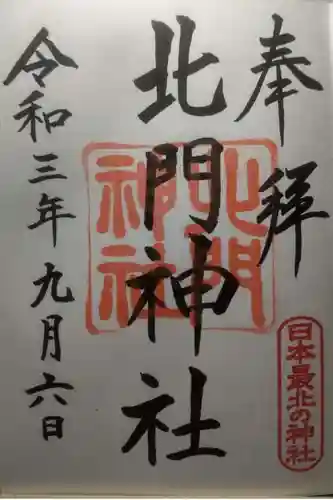 奉拝
北門神社
北門神社
日本最北の神社
令和三年九月六日